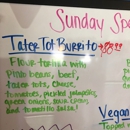 Sunday Spe
Tater Tot Burrito
Flour tortilla with
Pinto beans, beef,
tater tots, cheese,
tomatoes, pickled jalapeños,
green onions, sour cream
and tomatillo salsa!
Vegan